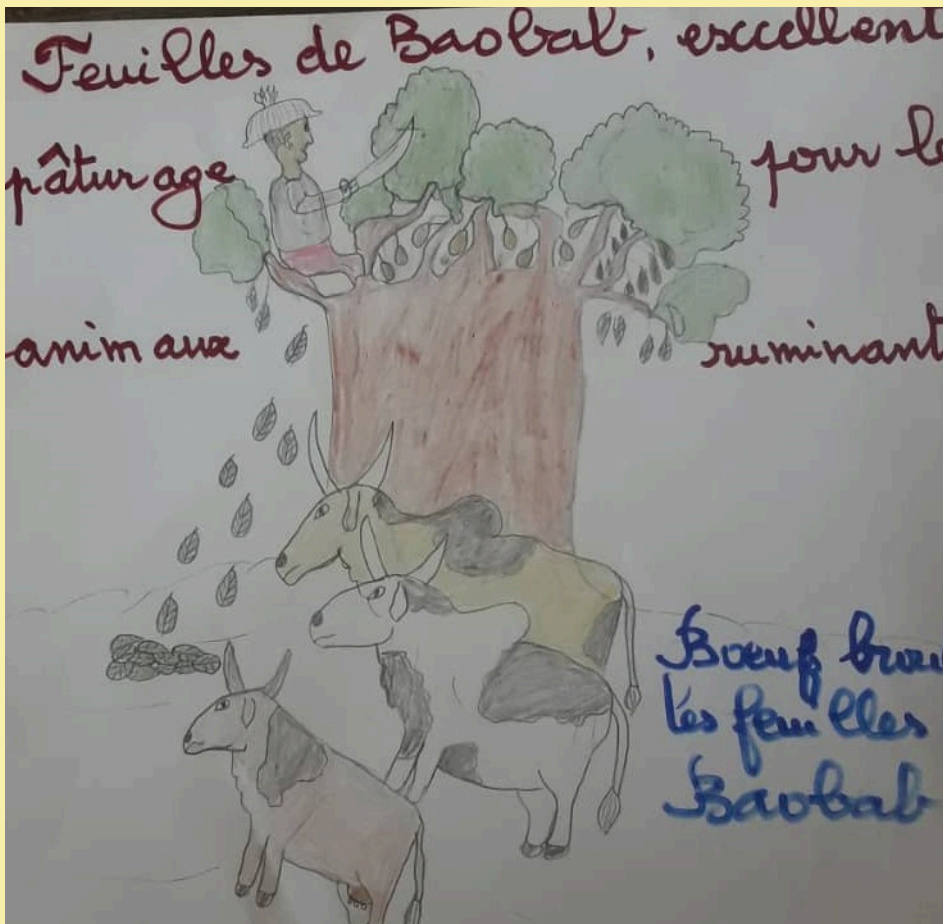 Feuilles de Baobab, excellent
pâturage pour le
animaux ruminant
Boeuf brou
les feuilles
Baobab